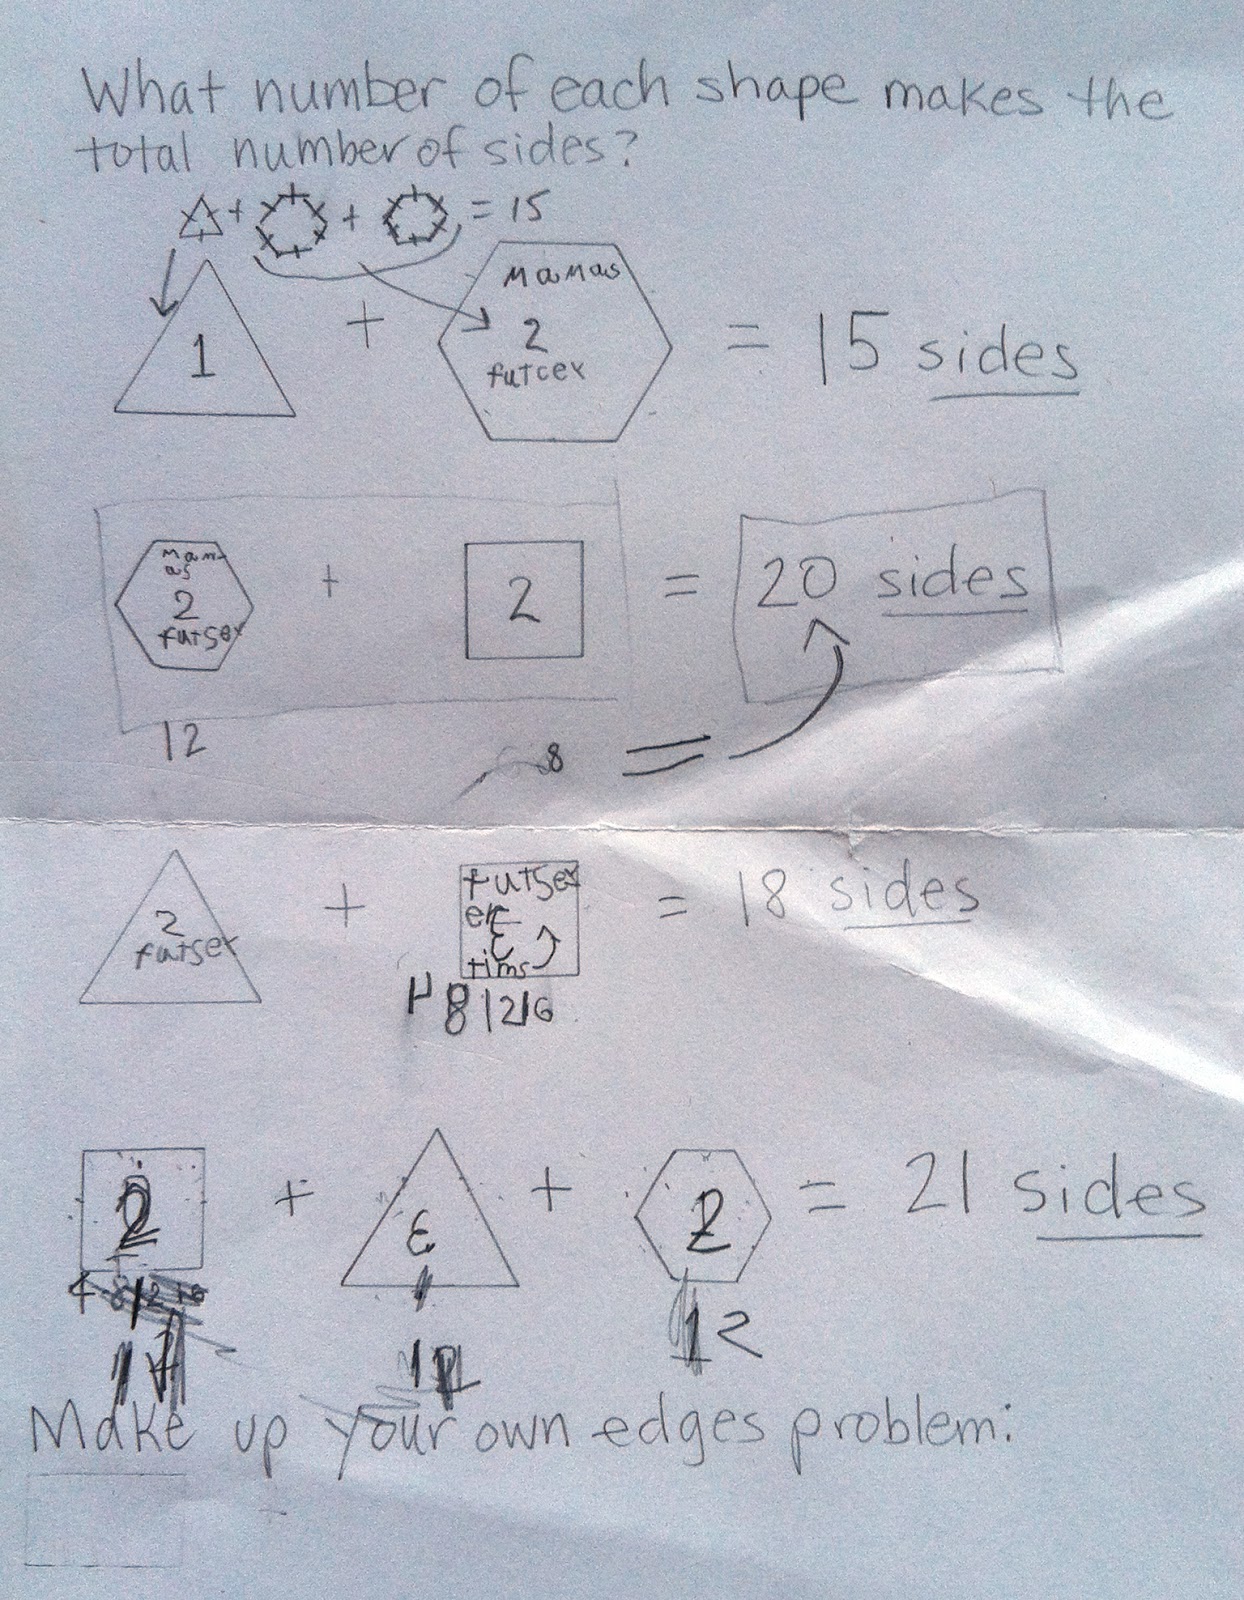 What number of each shape makes the
total number of sides?
+ + = 15
1 + mamas 2 futcex = 15 sides
mam-
as
2 + 2 = 20 sides
futsex
12 8 =
2 + futsex = 18 sides
futsex
tims
8 12 16
2 + + 2 = 21 sides
4 8 12 16
12
Make up your own edges problem: